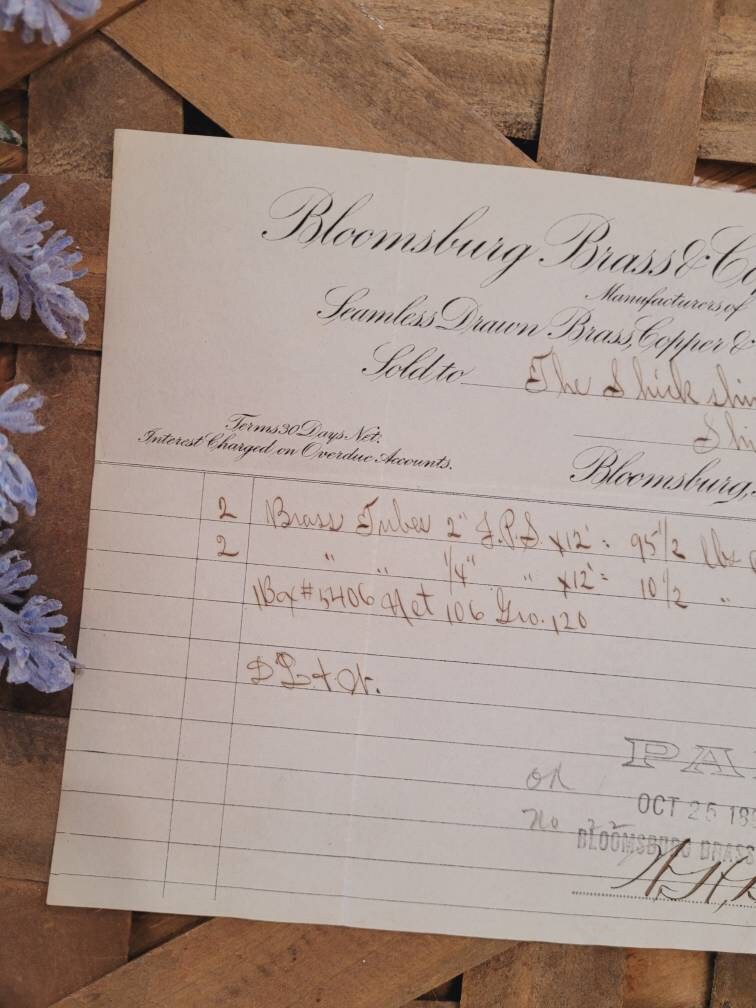 Bloomsburg Brass & Co
Manufacturers of
Seamless Drawn Brass, Copper &
Sold to The Shick shin
Shi
Terms 30 Days Net.
Interest Charged on Overdue Accounts.
Bloomsburg,
2 Brass Tubes 2" I.P.S. x12' = 95 1/2 lbs
2 " " 1/4" " x12' = 10 1/2 "
1 Box #5406 Net 106 Gro. 120
PA
OK
OCT 25 189
No 22
BLOOMSBURG BRASS